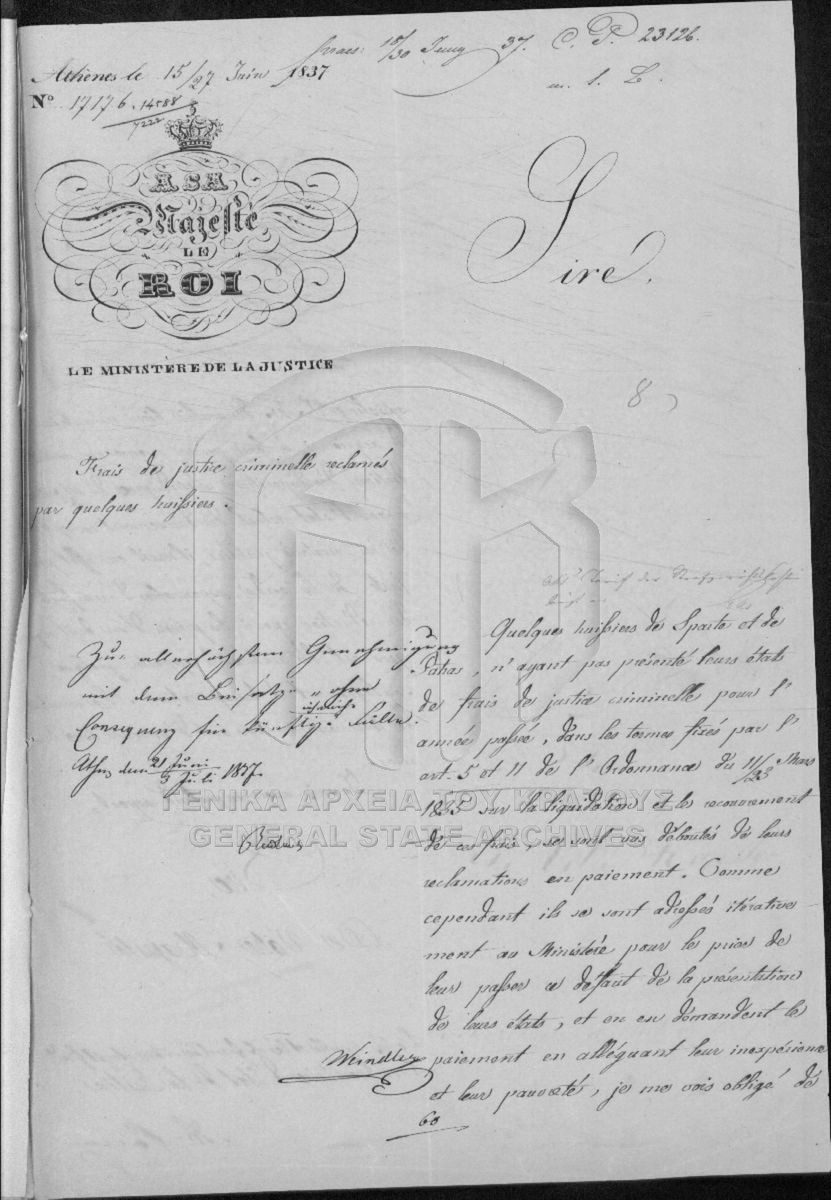 Athènes le 15/27 Juin 1837
praes: 18/30 Juny 37. C. P. 23126.
No 17176. 14588
7222
m. 1. L.
A SA
Majesté
LE
ROI
LE MINISTÈRE DE LA JUSTICE
Siré.
8
Frais de justice criminelle reclamés
par quelques huissiers.
Tarif der
Zur allerhöchsten Genehmigung
mit dem Beisatze "ohne
Consequenz für künftige Fälle.
ähnliche
Athen den 21 Juni / 3 Juli 1837.
Quelques huissiers de Sparte et de
Patras, n'ayant pas présenté leurs états
de frais de justice criminelle pour l'
année passée, dans les termes fixés par l'
art. 5 et 11 de l'Ordonnance du 11/23 Mars
1835 sur la liquidation et le recouvrement
de ces frais, se sont vus déboutés de leurs
reclamations en paiement. Comme
cependant ils se sont adressés itérative
ment au Ministère pour le prier de
leur passer ce défaut de la présentation
de leurs états, et en en demandent le
paiement en alléguant leur inexpérience
et leur pauvreté, je me vois obligé de
Weindler
60
ΓΕΝΙΚΑ ΑΡΧΕΙΑ ΤΟΥ ΚΡΑΤΟΥΣ
GENERAL STATE ARCHIVES